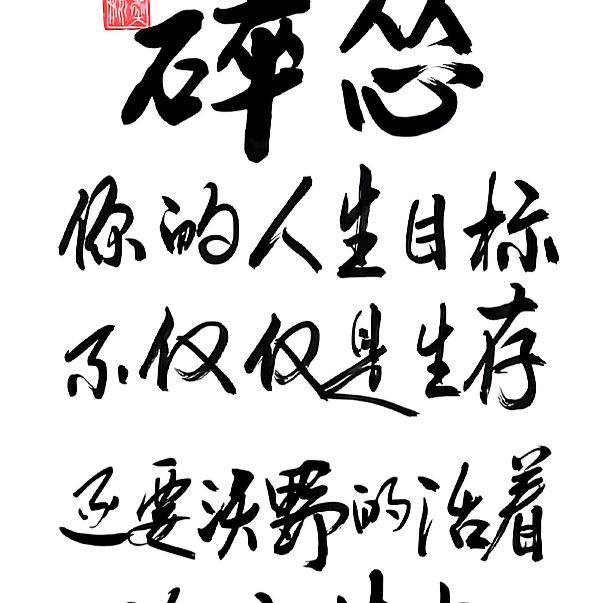 碎怂
你的人生目标
不仅仅是生存
还要野的活着